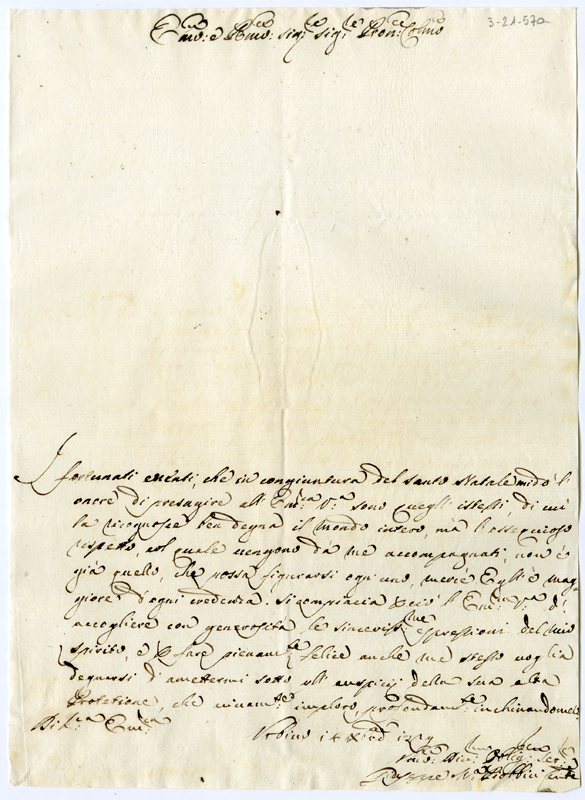 3-21-570
Em.mo e R.mo Sig.re Sig.re Pron.e Col.mo
I fortunati eventi, che in congiuntura del santo Natale mi dò l'
onore di presagire all' Em.za V.a sono quegli istessi, di cui
la ricognosce ben degna il Mondo intero, mà l'ossequioso
rispetto, col quale vengono da me accompagnati, non è
già quello, che possa figurarsi ogni uno, mercè Egli è mag-
giore d'ogni credenza. Si compiaccia perciò l' Em.za V.a di
accogliere con generosità le sincerissime espressioni del mio
spirito, e per fare pienam.te felice anche me stesso voglia
degnarsi d'amettermi sotto gli auspicij della sua alta
Protetione, che vivam.te imploro, profondam.te inchinandomele
Di V.ra Em.za
Urbino 14 Xbre
Um.o Div.o Oblig.o Ser.e